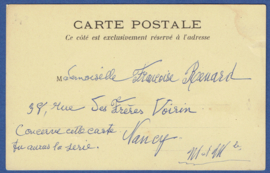 CARTE POSTALE
Ce côté est exclusivement réservé à l'adresse
Mademoiselle Françoise Renard
39, rue des Frères Voirin
Conserve cette carte
Nancy
tu auras la série.
M-et-Mlle